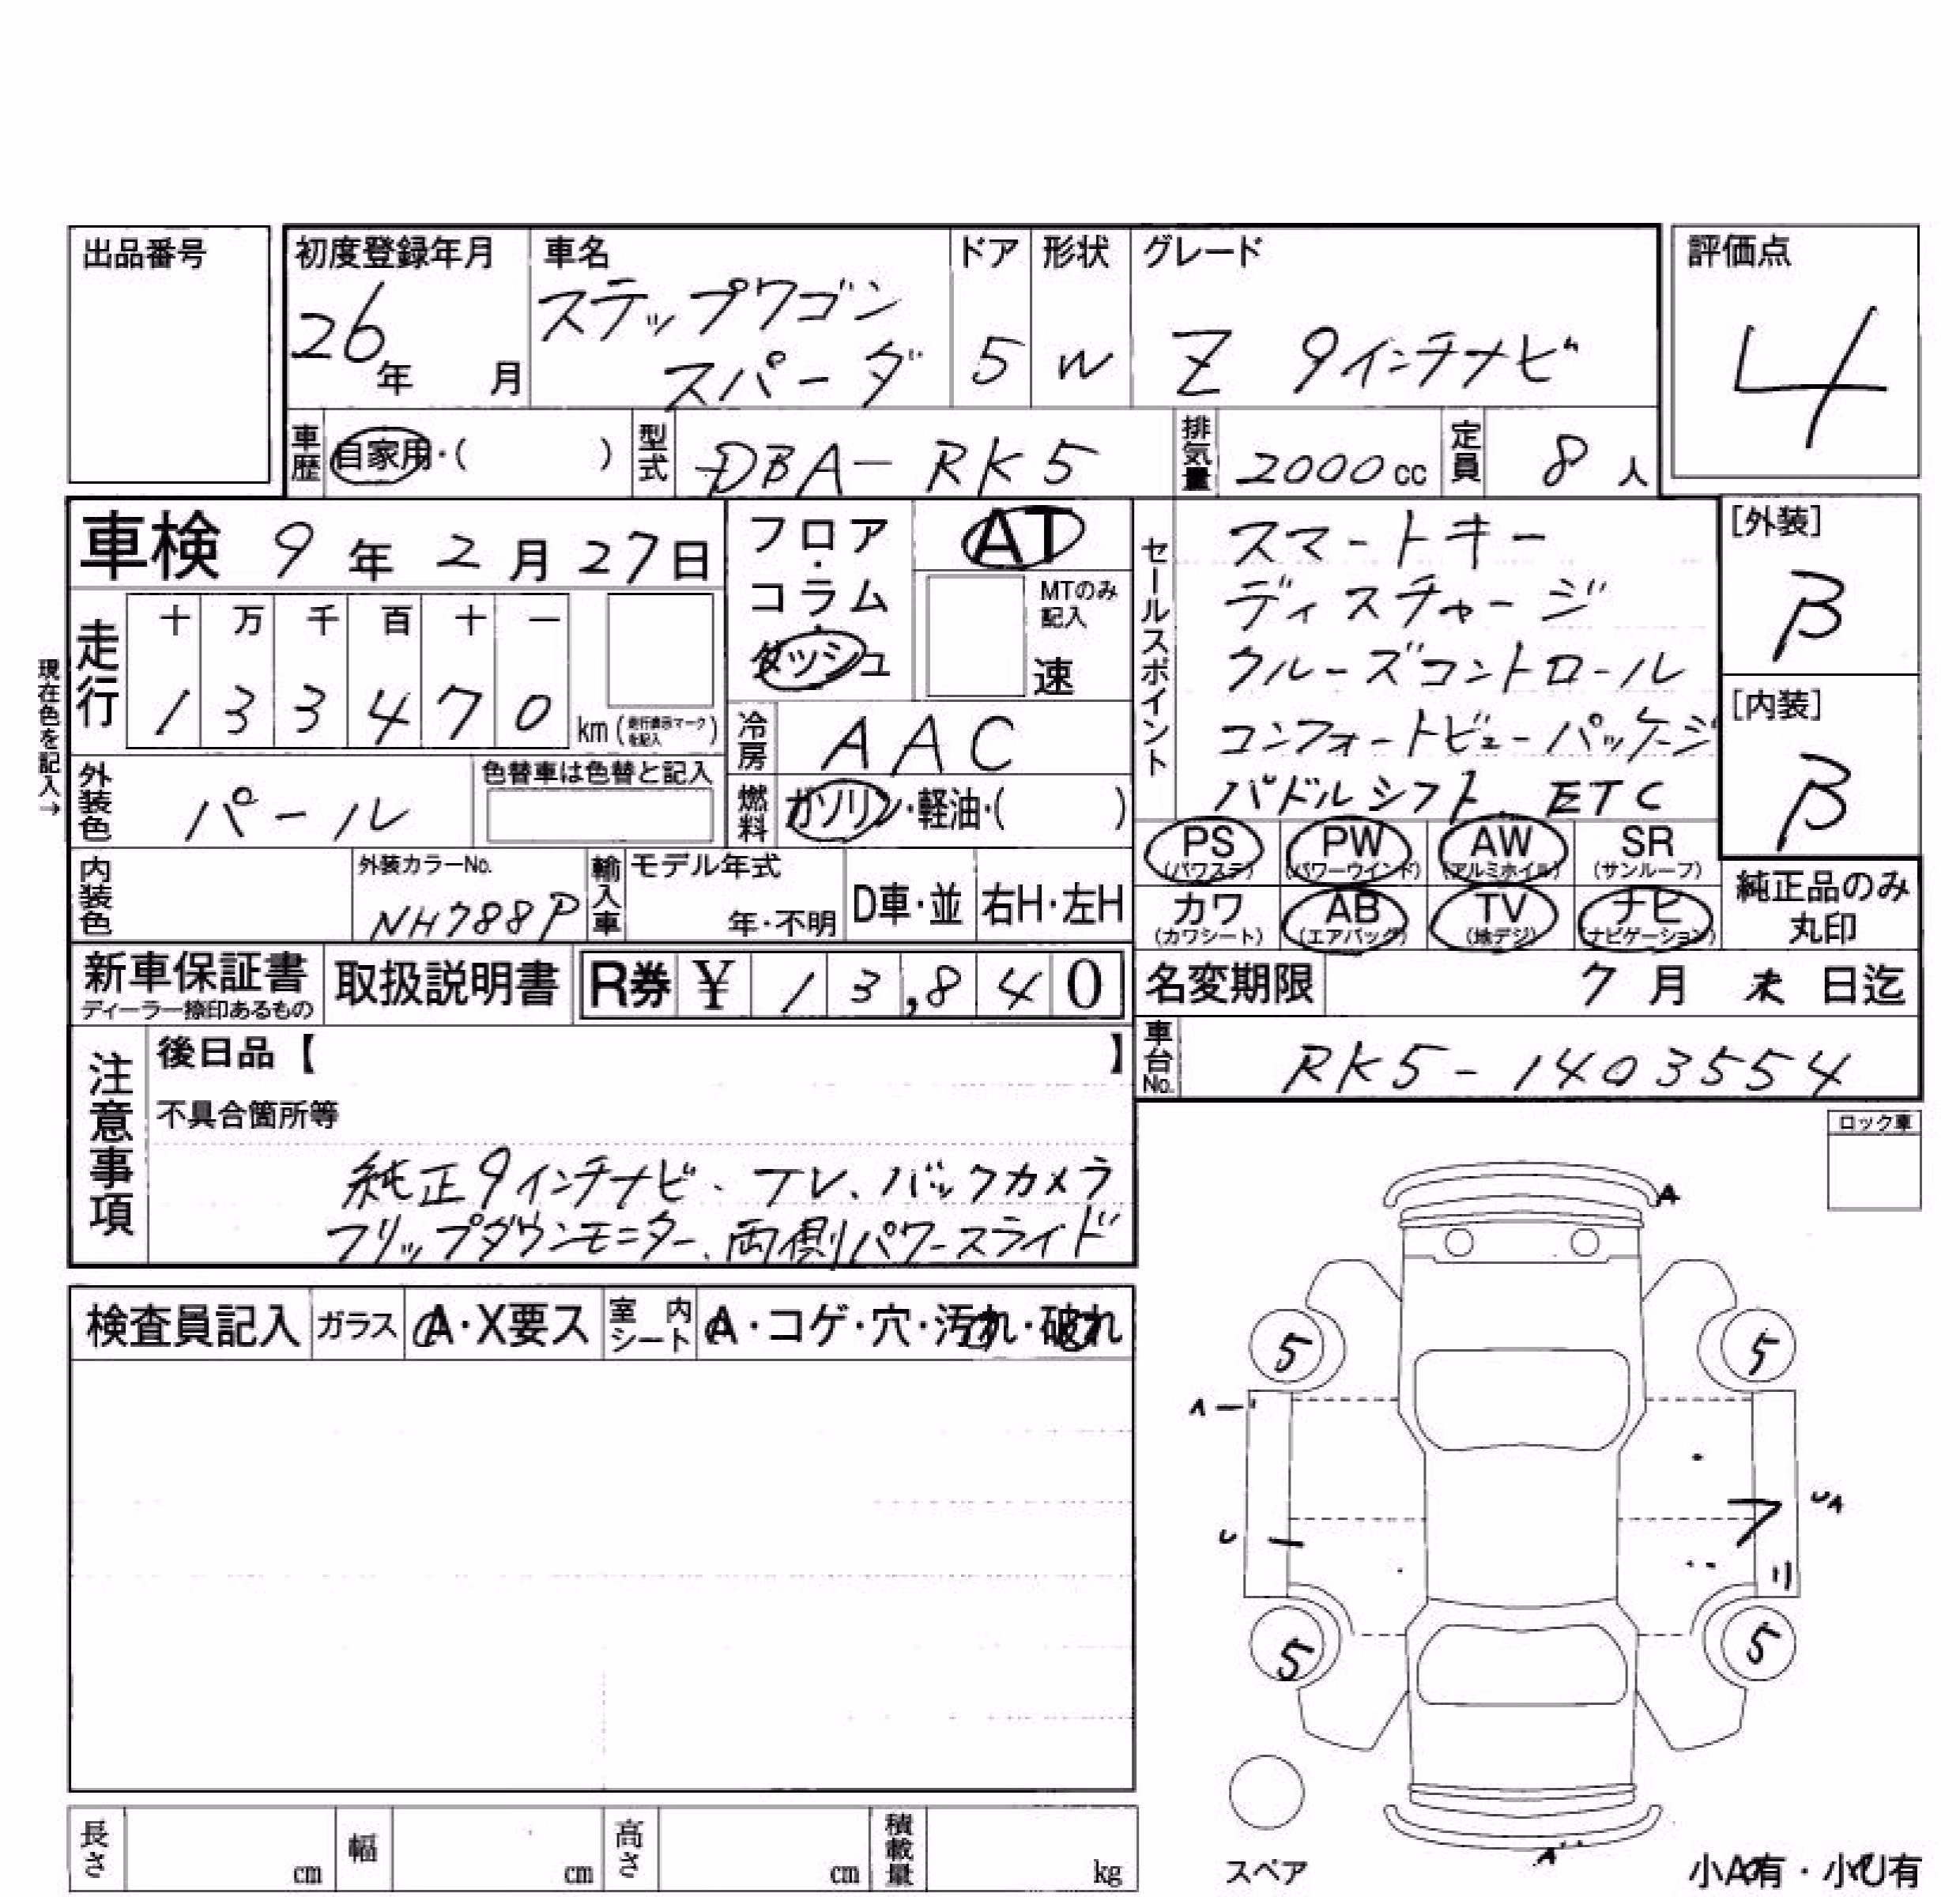 出品番号
初度登録年月 車名 ドア 形状 グレード 評価点
26年 月 ステップワゴン
スパーダ 5 W Z 9インチナビ 4
車歴 自家用・( ) 型式 DBA-RK5 排気量 2000cc 定員 8人
車検 9年2月27日
フロア・コラム・ダッシュ
AT
MTのみ記入
速
セールスポイント
スマートキー
ディスチャージ
クルーズコントロール
コンフォートビューパッケージ
パドルシフト. ETC
[外装]
B
[内装]
B
現在色を記入→
走行 十 万 千 百 十 一
1 3 3 4 7 0 km (走行表示マークを記入)
冷房 AAC
外装色 パール 色替車は色替と記入
燃料 ガソリン・軽油・( )
PS (パワステ) PW (パワーウインド) AW (アルミホイル) SR (サンルーフ)
カワ (カワシート) AB (エアバッグ) TV (地デジ) ナビ (ナビゲーション)
純正品のみ
丸印
内装色 外装カラーNo. NH788P 輸入車 モデル年式 年・不明 D車・並 右H・左H
新車保証書 ディーラー捺印あるもの 取扱説明書 R券 ¥ 13,840
名変期限 7月 末 日迄
車台No. RK5-1403554
注意事項
後日品【 】
不具合箇所等
純正9インチナビ、TV、バックカメラ
フリップダウンモニター、両側パワースライド
ロック車
検査員記入 ガラス A・X要ス 室内シート A・コゲ・穴・汚れ・破れ
A
5 5
A
UA
U
5 5
A
スペア
小A有・小U有
長さ cm 幅 cm 高さ cm 積載量 kg